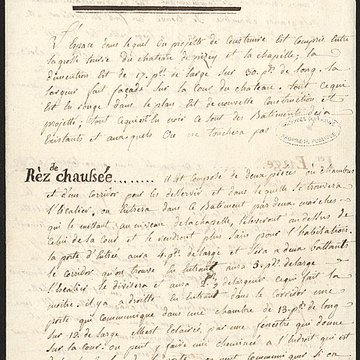 L'Espace dans lequel on projette de construire est compris entre
la grosse tour du chateau de pizey et la chapelle; sa
dimention est de 17. pds de large sur 30. pds de long. la
largeur fait façade sur la cour du chateau. tout ce qui
est en rouge dans le plan est de nouvelle construction et
projettée; tout ce qui est en noir ce sont des Batiments deja
existants et auxquels on ne touchera pas
Rèz de chaussée......... il est composé de deux pieces ou chambres
et d'un corridor pour les desservir et dans lequel se trouvera
l'escalier, on entrera dans ce Batiment par deux marches
qui le mettant au niveau de la chapelle, l'elevront au dessus de
celui de la cour et le rendront plus sain pour l'habitation.
la porte d'Entrée aura 4. pds de large et sera a deux battants
le corridor qu'on trouve en entrant aura 3. pds de large
l'Escalier le divisera et aura de largeur ce qui fait la
moitié. il y a a droite en entrant dans le corridor une
porte qui communique dans une chambre de 13. pds de long
sur 12. de large elle est eclairée par une fenêtre qui donne
sur la cour. on peut y faire une cheminée a l'endroit qui est